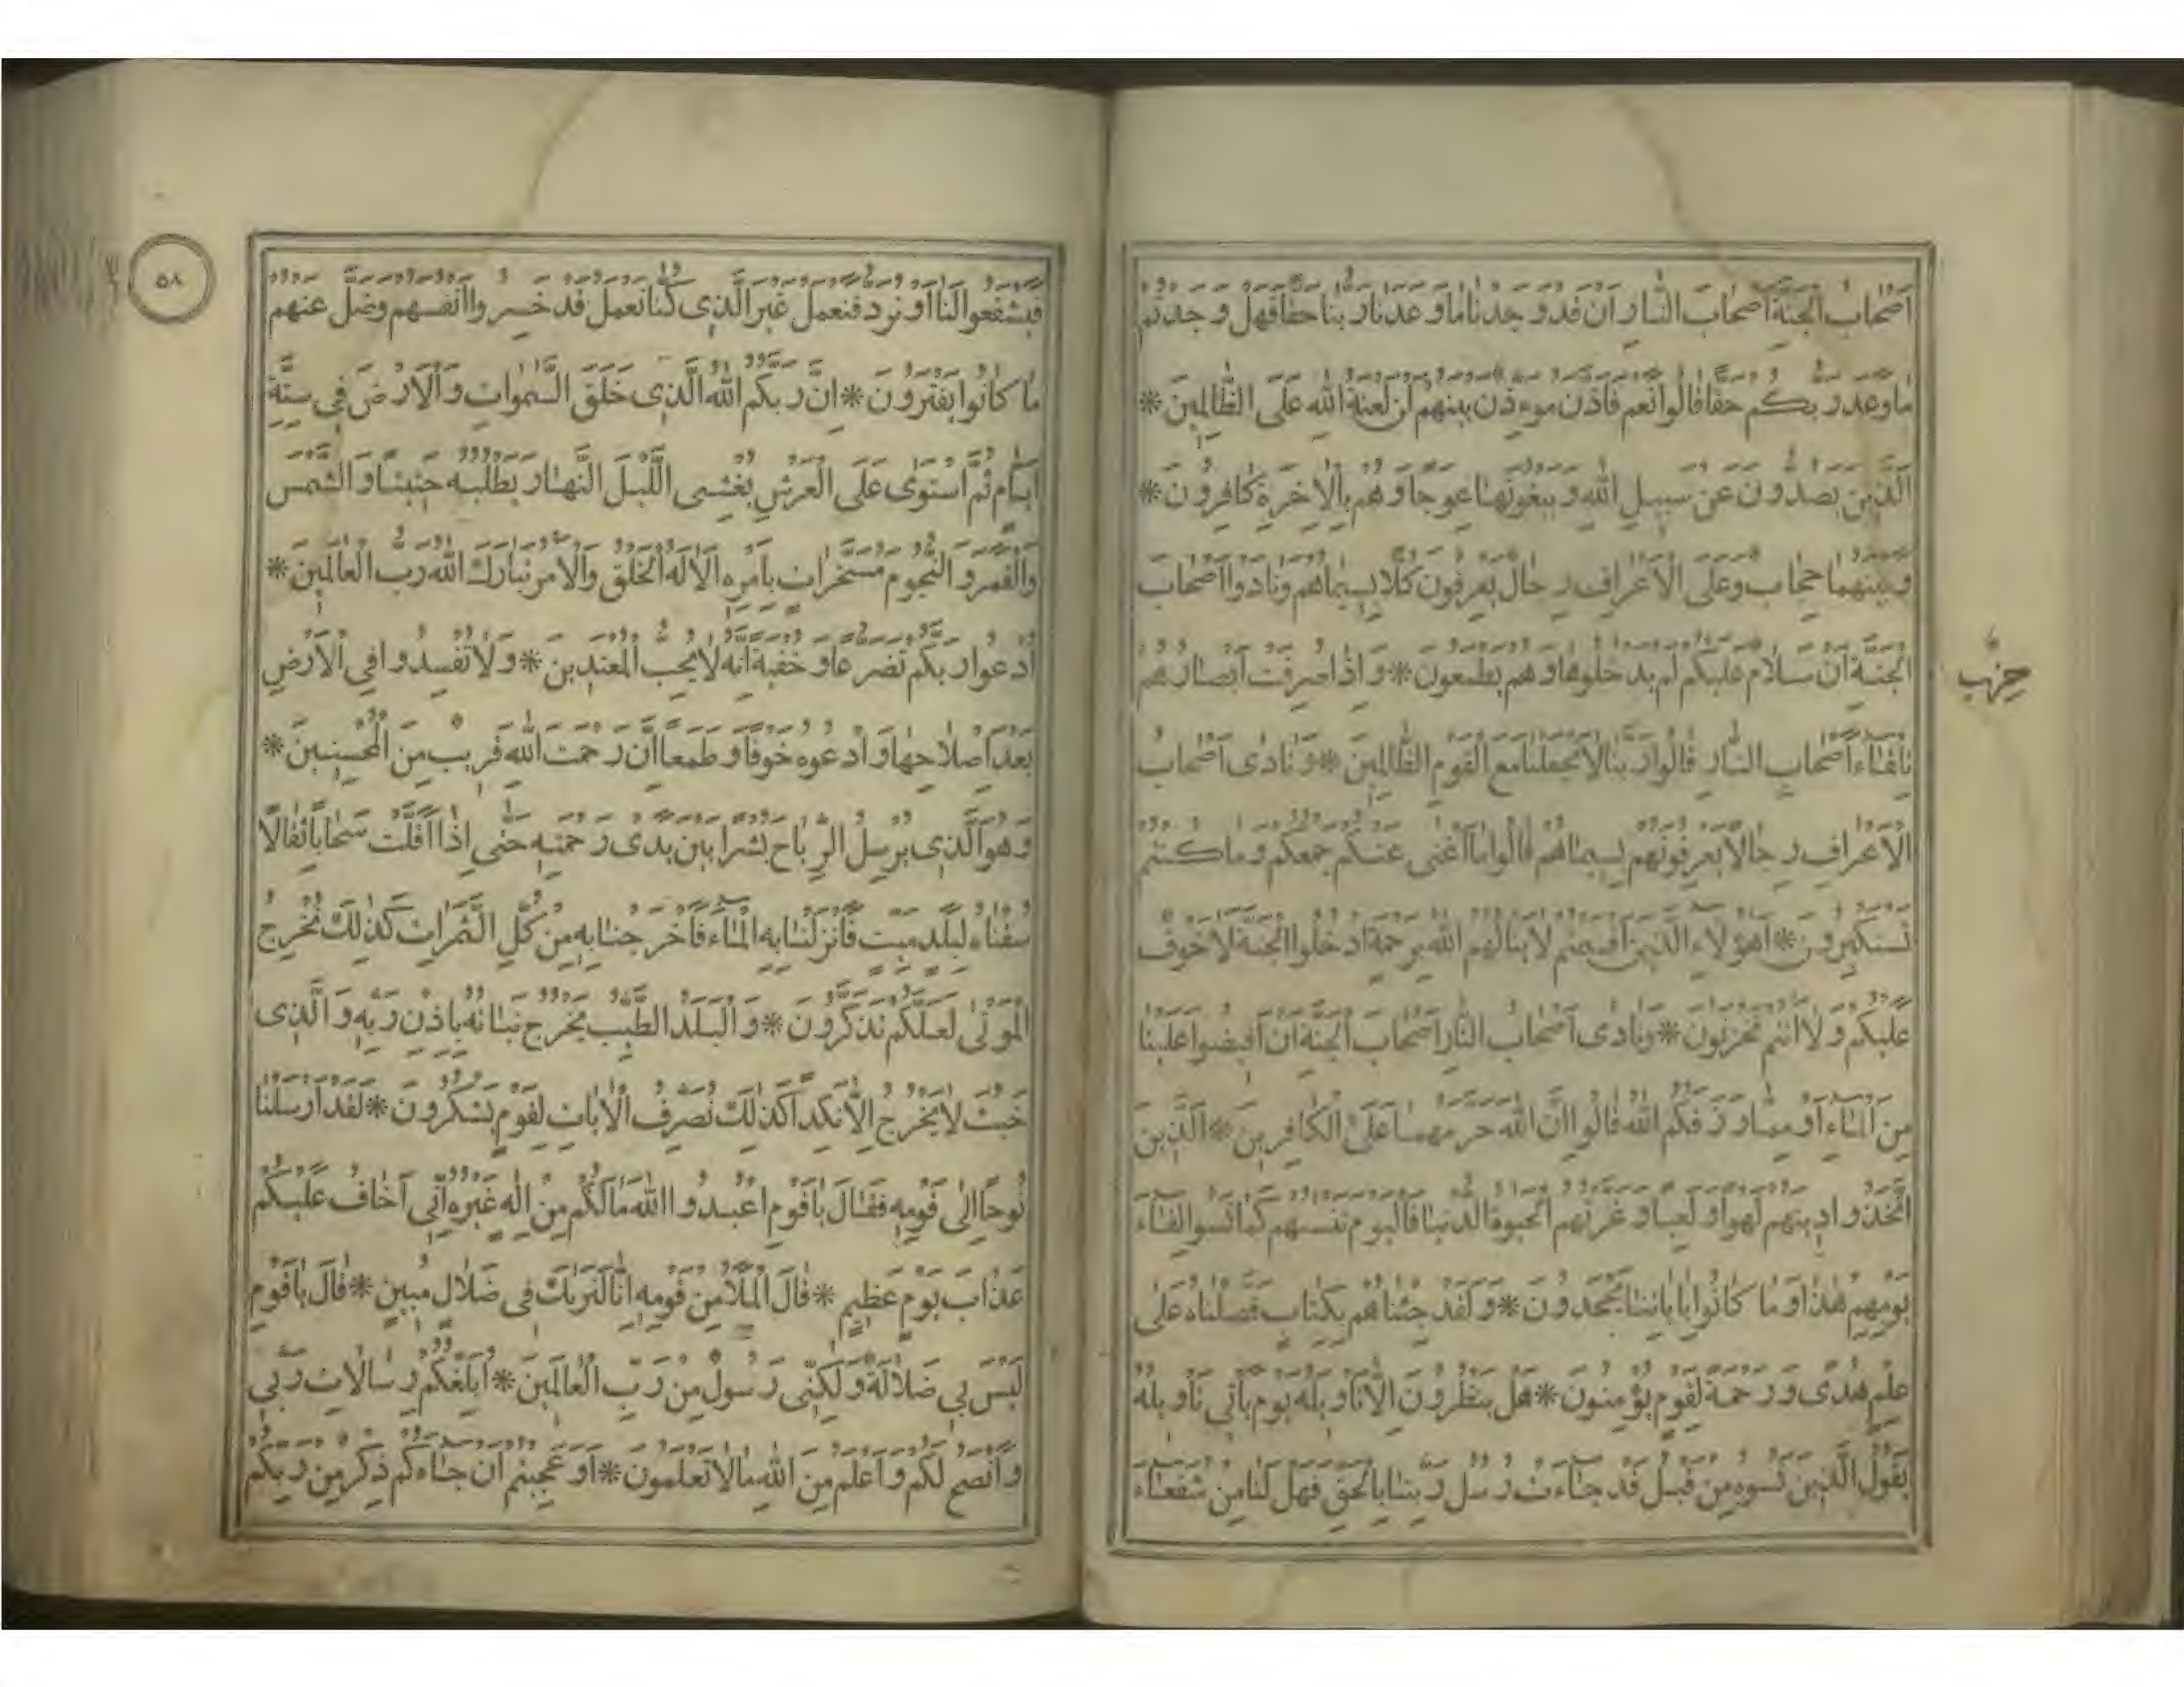 اَصْحَابُ الْجَنَّةِ اَصْحَابَ النَّارِ اَنْ قَدْ وَجَدْنَا مَا وَعَدَنَا رَبُّنَا حَقًّا فَهَلْ وَجَدْتُمْ
مَا وَعَدَ رَبُّكُمْ حَقًّا قَالُوا نَعَمْ فَاَذَّنَ مُوءَذِّنٌ بَيْنَهُمْ اَنْ لَعْنَةُ اللّٰهِ عَلَى الظَّالِمِينَ *
اَلَّذِينَ يَصُدُّونَ عَنْ سَبِيلِ اللّٰهِ وَيَبْغُونَهَا عِوَجًا وَهُمْ بِالْاٰخِرَةِ كَافِرُونَ *
وَبَيْنَهُمَا حِجَابٌ وَعَلَى الْاَعْرَافِ رِجَالٌ يَعْرِفُونَ كُلًّا بِسِيمَاهُمْ وَنَادَوْا اَصْحَابَ
الْجَنَّةِ اَنْ سَلَامٌ عَلَيْكُمْ لَمْ يَدْخُلُوهَا وَهُمْ يَطْمَعُونَ * وَاِذَا صُرِفَتْ اَبْصَارُهُمْ
حِزْب
تِلْقَاءَ اَصْحَابِ النَّارِ قَالُوا رَبَّنَا لَا تَجْعَلْنَا مَعَ الْقَوْمِ الظَّالِمِينَ * وَنَادٰى اَصْحَابُ
الْاَعْرَافِ رِجَالًا يَعْرِفُونَهُمْ بِسِيمَاهُمْ قَالُوا مَا اَغْنٰى عَنْكُمْ جَمْعُكُمْ وَمَا كُنْتُمْ
تَسْتَكْبِرُونَ * اَهٰؤُلَاءِ الَّذِينَ اَقْسَمْتُمْ لَا يَنَالُهُمُ اللّٰهُ بِرَحْمَةٍ اُدْخُلُوا الْجَنَّةَ لَا خَوْفٌ
عَلَيْكُمْ وَلَا اَنْتُمْ تَحْزَنُونَ * وَنَادٰى اَصْحَابُ النَّارِ اَصْحَابَ الْجَنَّةِ اَنْ اَفِيضُوا عَلَيْنَا
مِنَ الْمَاءِ اَوْ مِمَّا رَزَقَكُمُ اللّٰهُ قَالُوا اِنَّ اللّٰهَ حَرَّمَهُمَا عَلَى الْكَافِرِينَ * اَلَّذِينَ
اتَّخَذُوا دِينَهُمْ لَهْوًا وَلَعِبًا وَغَرَّتْهُمُ الْحَيٰوةُ الدُّنْيَا فَالْيَوْمَ نَنْسٰيهُمْ كَمَا نَسُوا لِقَاءَ
يَوْمِهِمْ هٰذَا وَمَا كَانُوا بِاٰيَاتِنَا يَجْحَدُونَ * وَلَقَدْ جِئْنَاهُمْ بِكِتَابٍ فَصَّلْنَاهُ عَلٰى
عِلْمٍ هُدًى وَرَحْمَةً لِقَوْمٍ يُؤْمِنُونَ * هَلْ يَنْظُرُونَ اِلَّا تَاْوِيلَهُ يَوْمَ يَاْتِي تَاْوِيلُهُ
يَقُولُ الَّذِينَ نَسُوهُ مِنْ قَبْلُ قَدْ جَاءَتْ رُسُلُ رَبِّنَا بِالْحَقِّ فَهَلْ لَنَا مِنْ شُفَعَاءَ
٥٨
فَيَشْفَعُوا لَنَا اَوْ نُرَدُّ فَنَعْمَلَ غَيْرَ الَّذِي كُنَّا نَعْمَلُ قَدْ خَسِرُوا اَنْفُسَهُمْ وَضَلَّ عَنْهُمْ
مَا كَانُوا يَفْتَرُونَ * اِنَّ رَبَّكُمُ اللّٰهُ الَّذِي خَلَقَ السَّمٰوَاتِ وَالْاَرْضَ فِي سِتَّةِ
اَيَّامٍ ثُمَّ اسْتَوٰى عَلَى الْعَرْشِ يُغْشِي اللَّيْلَ النَّهَارَ يَطْلُبُهُ حَثِيثًا وَالشَّمْسَ
وَالْقَمَرَ وَالنُّجُومَ مُسَخَّرَاتٍ بِاَمْرِهِ اَلَا لَهُ الْخَلْقُ وَالْاَمْرُ تَبَارَكَ اللّٰهُ رَبُّ الْعَالَمِينَ *
اُدْعُوا رَبَّكُمْ تَضَرُّعًا وَخُفْيَةً اِنَّهُ لَا يُحِبُّ الْمُعْتَدِينَ * وَلَا تُفْسِدُوا فِي الْاَرْضِ
بَعْدَ اِصْلَاحِهَا وَادْعُوهُ خَوْفًا وَطَمَعًا اِنَّ رَحْمَتَ اللّٰهِ قَرِيبٌ مِنَ الْمُحْسِنِينَ *
وَهُوَ الَّذِي يُرْسِلُ الرِّيَاحَ بُشْرًا بَيْنَ يَدَيْ رَحْمَتِهِ حَتّٰى اِذَا اَقَلَّتْ سَحَابًا ثِقَالًا
سُقْنَاهُ لِبَلَدٍ مَيِّتٍ فَاَنْزَلْنَا بِهِ الْمَاءَ فَاَخْرَجْنَا بِهِ مِنْ كُلِّ الثَّمَرَاتِ كَذٰلِكَ نُخْرِجُ
الْمَوْتٰى لَعَلَّكُمْ تَذَكَّرُونَ * وَالْبَلَدُ الطَّيِّبُ يَخْرُجُ نَبَاتُهُ بِاِذْنِ رَبِّهِ وَالَّذِي
خَبُثَ لَا يَخْرُجُ اِلَّا نَكِدًا كَذٰلِكَ نُصَرِّفُ الْاٰيَاتِ لِقَوْمٍ يَشْكُرُونَ * لَقَدْ اَرْسَلْنَا
نُوحًا اِلٰى قَوْمِهِ فَقَالَ يَا قَوْمِ اعْبُدُوا اللّٰهَ مَا لَكُمْ مِنْ اِلٰهٍ غَيْرُهُ اِنِّي اَخَافُ عَلَيْكُمْ
عَذَابَ يَوْمٍ عَظِيمٍ * قَالَ الْمَلَاُ مِنْ قَوْمِهِ اِنَّا لَنَرٰيكَ فِي ضَلَالٍ مُبِينٍ * قَالَ يَا قَوْمِ
لَيْسَ بِي ضَلَالَةٌ وَلٰكِنِّي رَسُولٌ مِنْ رَبِّ الْعَالَمِينَ * اُبَلِّغُكُمْ رِسَالَاتِ رَبِّي
وَاَنْصَحُ لَكُمْ وَاَعْلَمُ مِنَ اللّٰهِ مَا لَا تَعْلَمُونَ * اَوَعَجِبْتُمْ اَنْ جَاءَكُمْ ذِكْرٌ مِنْ رَبِّكُمْ